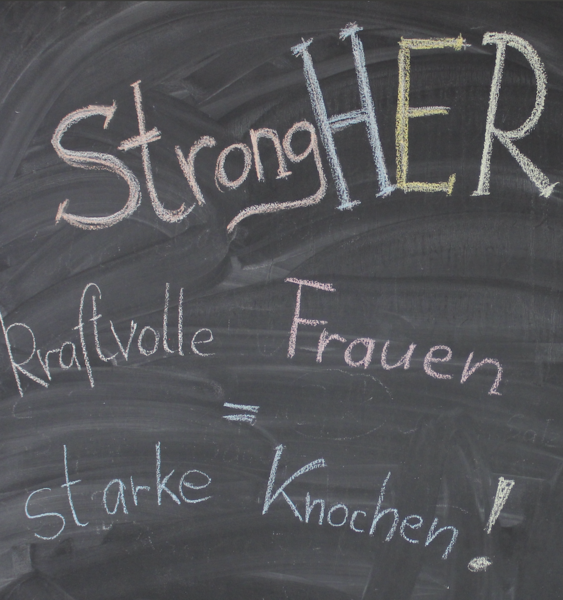 StrongHER
kraftvolle Frauen
=
starke Knochen!